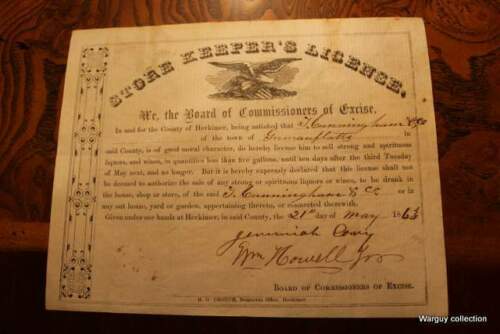 STORE KEEPER'S LICENSE,
We, the Board of Commissioners of Excise,
In and for the County of Herkimer, being satisfied that T. Cunningham & Co
of the town of Germanflatts in
said County, is of good moral character, do hereby license him to sell strong and spirituous
liquors, and wines, in quantities less than five gallons, until ten days after the third Tuesday
of May next, and no longer. But it is expressly declared that this license shall not
be deemed to authorize the sale of any strong or spirituous liquors or wines, to be drank in
the house, shop or store, of the said T. Cunningham & Co. or in
any out house, yard or garden, appertaining thereto, or connected therewith.
Given under our hands at Herkimer, in said County, the 21st day of May 186
Jeremiah
Wm Howell
BOARD OF COMMISSIONERS OF EXCISE.
Democrat Office, Herkimer.
Warguy collection